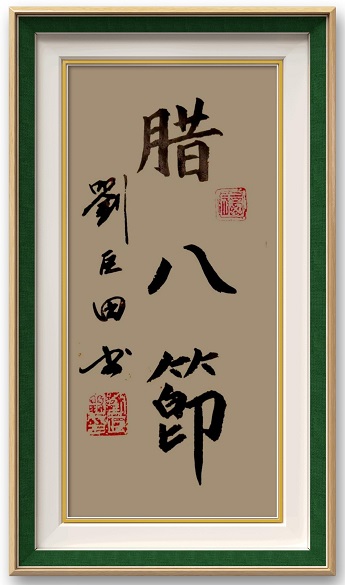 腊八節
劉巨田书